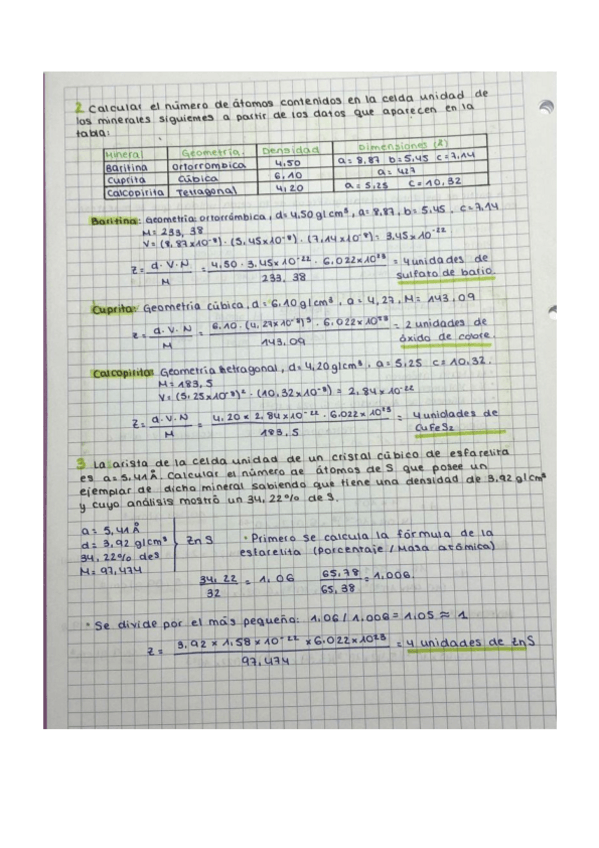 2. Calcular el número de átomos contenidos en la celda unidad de
los minerales siguientes a partir de los datos que aparecen en la
tabla:
Mineral Geometría. Densidad Dimensiones (Å)
Baritina Ortorrómbica 4,50 a= 8,87 b= 5,45 c= 7,14
Cuprita Cúbica 6,10 a= 427
Calcopirita Tetragonal 4,20 a= 5,25 c= 10,32
Baritina: Geometría ortorrómbica, d= 4,50 g/cm³, a= 8,87, b= 5,45, c= 7,14
M= 233, 38
V= (8,87x10⁻⁸) · (5,45x10⁻⁸) · (7,14x10⁻⁸)= 3,45x10⁻²²
Z= d·V·N / M = 4,50 · 3,45x10⁻²² · 6,022x10²³ / 233, 38 = 4 unidades de
sulfato de bario.
Cuprita: Geometría cúbica, d= 6,10 g/cm³, a= 4,27, M= 143,09
Z= d·V·N / M = 6,10 · (4,27x10⁻⁸)³ · 6,022x10²³ / 143,09 = 2 unidades de
óxido de cobre.
Calcopirita: Geometría tetragonal, d= 4,20 g/cm³, a= 5,25 c= 10,32.
M= 183,5
V= (5,25x10⁻⁸)² · (10,32x10⁻⁸) = 2,84x10⁻²²
Z= d·V·N / M = 4,20 x 2,84x10⁻²² · 6,022x10²³ / 183,5 = 4 unidades de
CuFeS₂
3. La arista de la celda unidad de un cristal cúbico de esfarelita
es a= 5,41Å. Calcular el número de átomos de S que posee un
ejemplar de dicho mineral sabiendo que tiene una densidad de 3,92 g/cm³
y cuyo análisis mostró un 34,22% de S.
a= 5,41Å
d= 3,92 g/cm³
34,22% de S
M= 97,474
ZnS
· Primero se calcula la fórmula de la
esfarelita (Porcentaje / Masa atómica)
34,22 / 32 = 1,06 65,78 / 65,38 = 1,006.
· Se divide por el más pequeño: 1,06 / 1,006 = 1,05 ≈ 1
Z= 3,92 x 1,58x10⁻²² x 6,022x10²³ / 97,474 = 4 unidades de ZnS